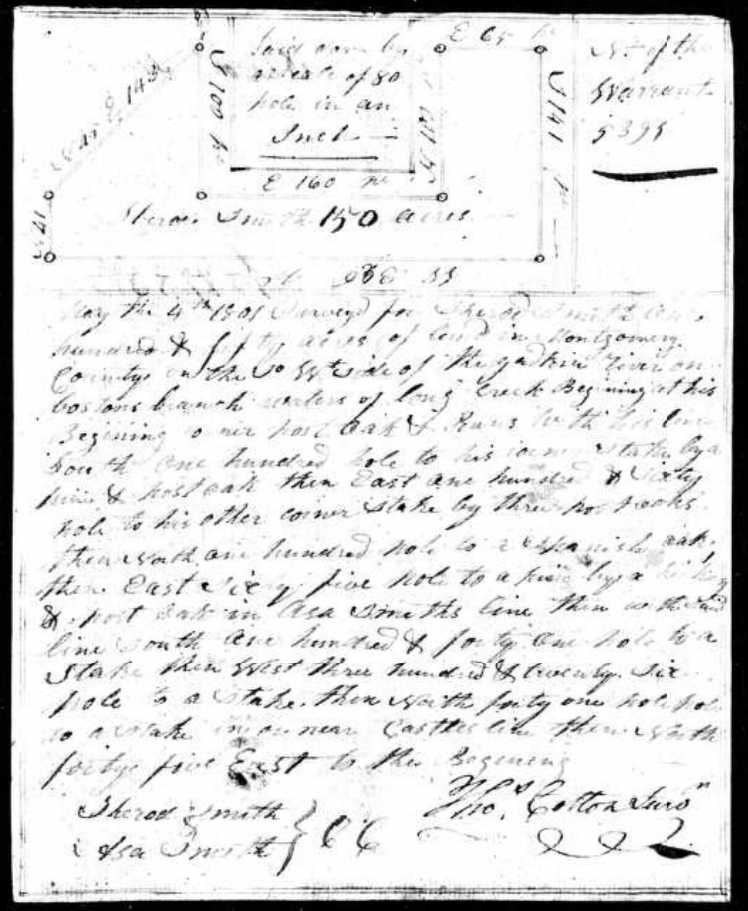 Laid down by
a scale of 80
pole in an
Inch
No. of the
Warrant
5395
E 65 po
S 100 po
S 141 po
E 160 po
Sherod Smith 150 acres
N 41
May the 4th 1801 Surveyd for Sherod Smith one
hundred & fifty acres of land in Montgomery
County on the So Wt side of the yadkin River on
bostons branch waters of long Creek Begining at his
Begining corner post oak & Runs with his line
South one hundred pole to his corner stake by a
pine & post oak then East one hundred & sixty
pole to his other corner stake by three post oaks
then North one hundred pole to a Spanish oak,
then East Sixty five pole to a pine by a hickory
& post oak in Asa Smiths line then with said
line South one hundred & forty one pole to a
Stake then West three hundred & twenty Six
pole to a Stake then North forty one pole pole
to a stake in or near Castles line then North
forty five East to the Begining
Sherod Smith
Asa Smith } CC
Thos. Cotton Survr